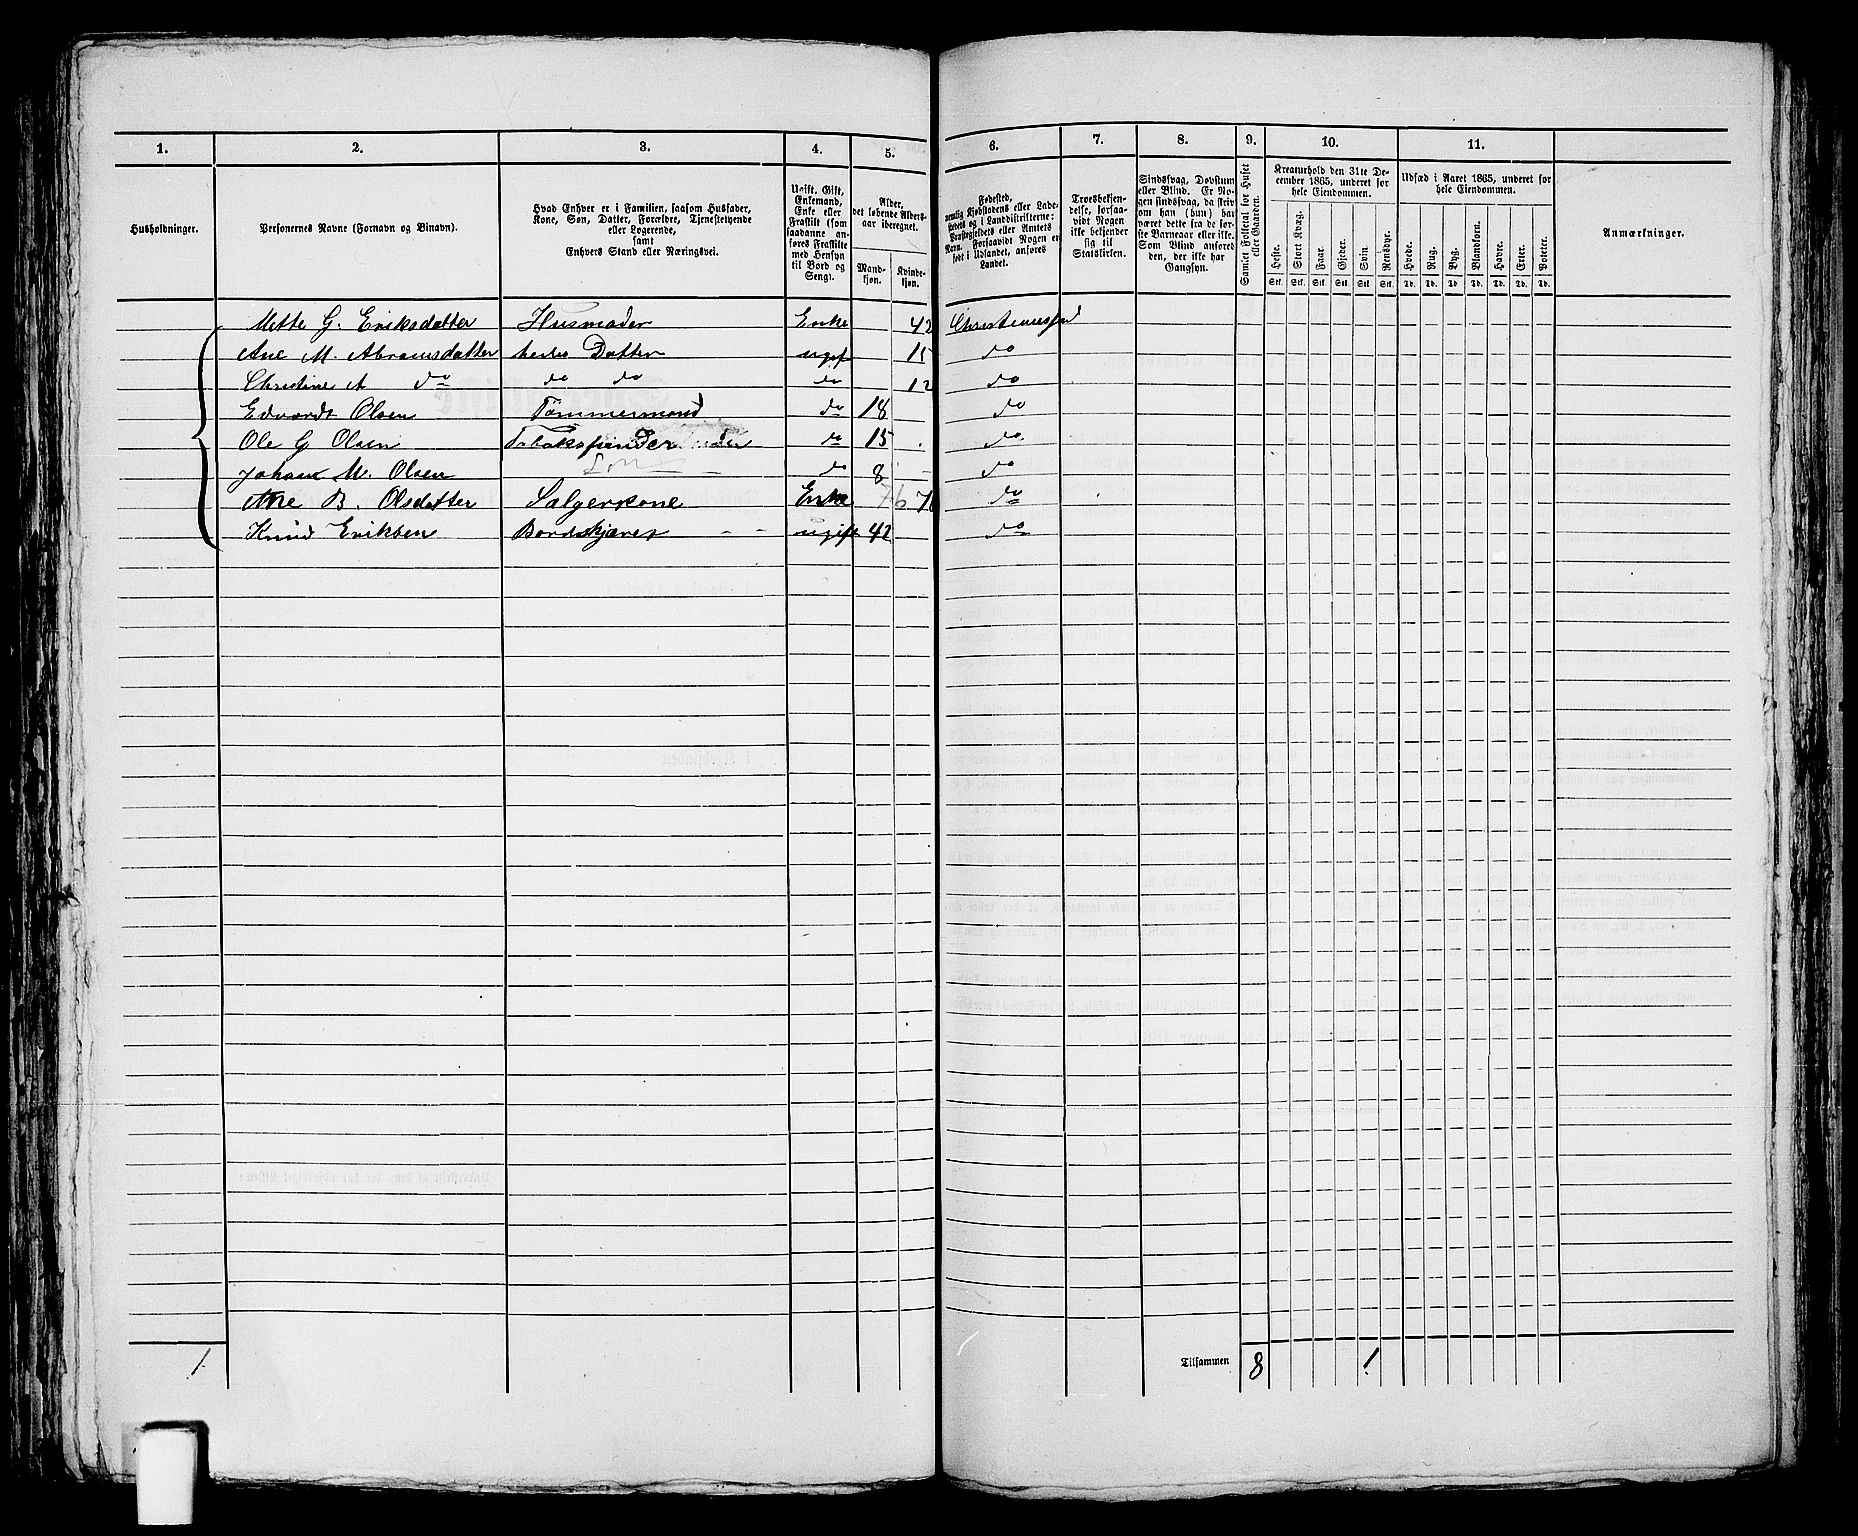 1. 2. 3. 4. 5. 6. 7. 8. 9. 10. 11.
Husholdninger.
Personernes Navne (Fornavn og Binavn).
Hvad Enhver er i Familien, saasom Husfader,
Kone, Søn, Datter, Forældre, Tjenestetyende
eller Logerende,
samt
Enhvers Stand eller Næringsvei.
Ugift, Gift,
Enkemand,
Enke eller
Fraskilt (som
saadanne an-
føres Fraskilte
med Hensyn
til Bord og
Seng).
Alder,
det løbende Alders-
aar iberegnet.
Mand-
kjøn.
Kvinde-
kjøn.
Fødested,
nemlig Kjøbstadens eller Lade-
stedets og i Landdistrikterne:
Præstegjeldets eller Amtets
Navn. Forsaavidt Nogen er
født i Udlandet, anføres
Landet.
Troesbekjen-
delse, forsaa-
vidt Nogen
ikke bekjender
sig til
Statskirken.
Sindssvag, Døvstum
eller Blind. Er No-
gen sindssvag, da skriv
om han (hun) har
været dette fra de før-
ste Barneaar eller ikke.
Som Blind anføres
den, der ikke har
Gangsyn.
Samlet Folketal for Huset
eller Gaarden.
Kreaturhold den 31te De-
cember 1865, underet for
hele Eiendommen.
Heste. Stort Kvæg. Faar. Gjeder. Svin. Rensdyr.
Stk. Stk. Stk. Stk. Stk. Stk.
Udsæd i Aaret 1865, underet for
hele Eiendommen.
Hvede. Rug. Byg. Blandkorn. Havre. Erter. Poteter.
Td. Td. Td. Td. Td. Td. Td.
Anmærkninger.
Mette G. Eriksdatter Husmoder Enke 42
Ane M. Abramsdatter hendes Datter ugif 15 do
Christine A do do do do 12 do
Edvardt Olsen Tømmermand do 18 do
Ole G Olsen do 15 do
Johan M. Olsen do 8 do
Ane B. Olsdatter Sælgerkone Enke 76 do
Knud Eriksen Bordskjærer ugift 42 do
1
Tilsammen 8 1